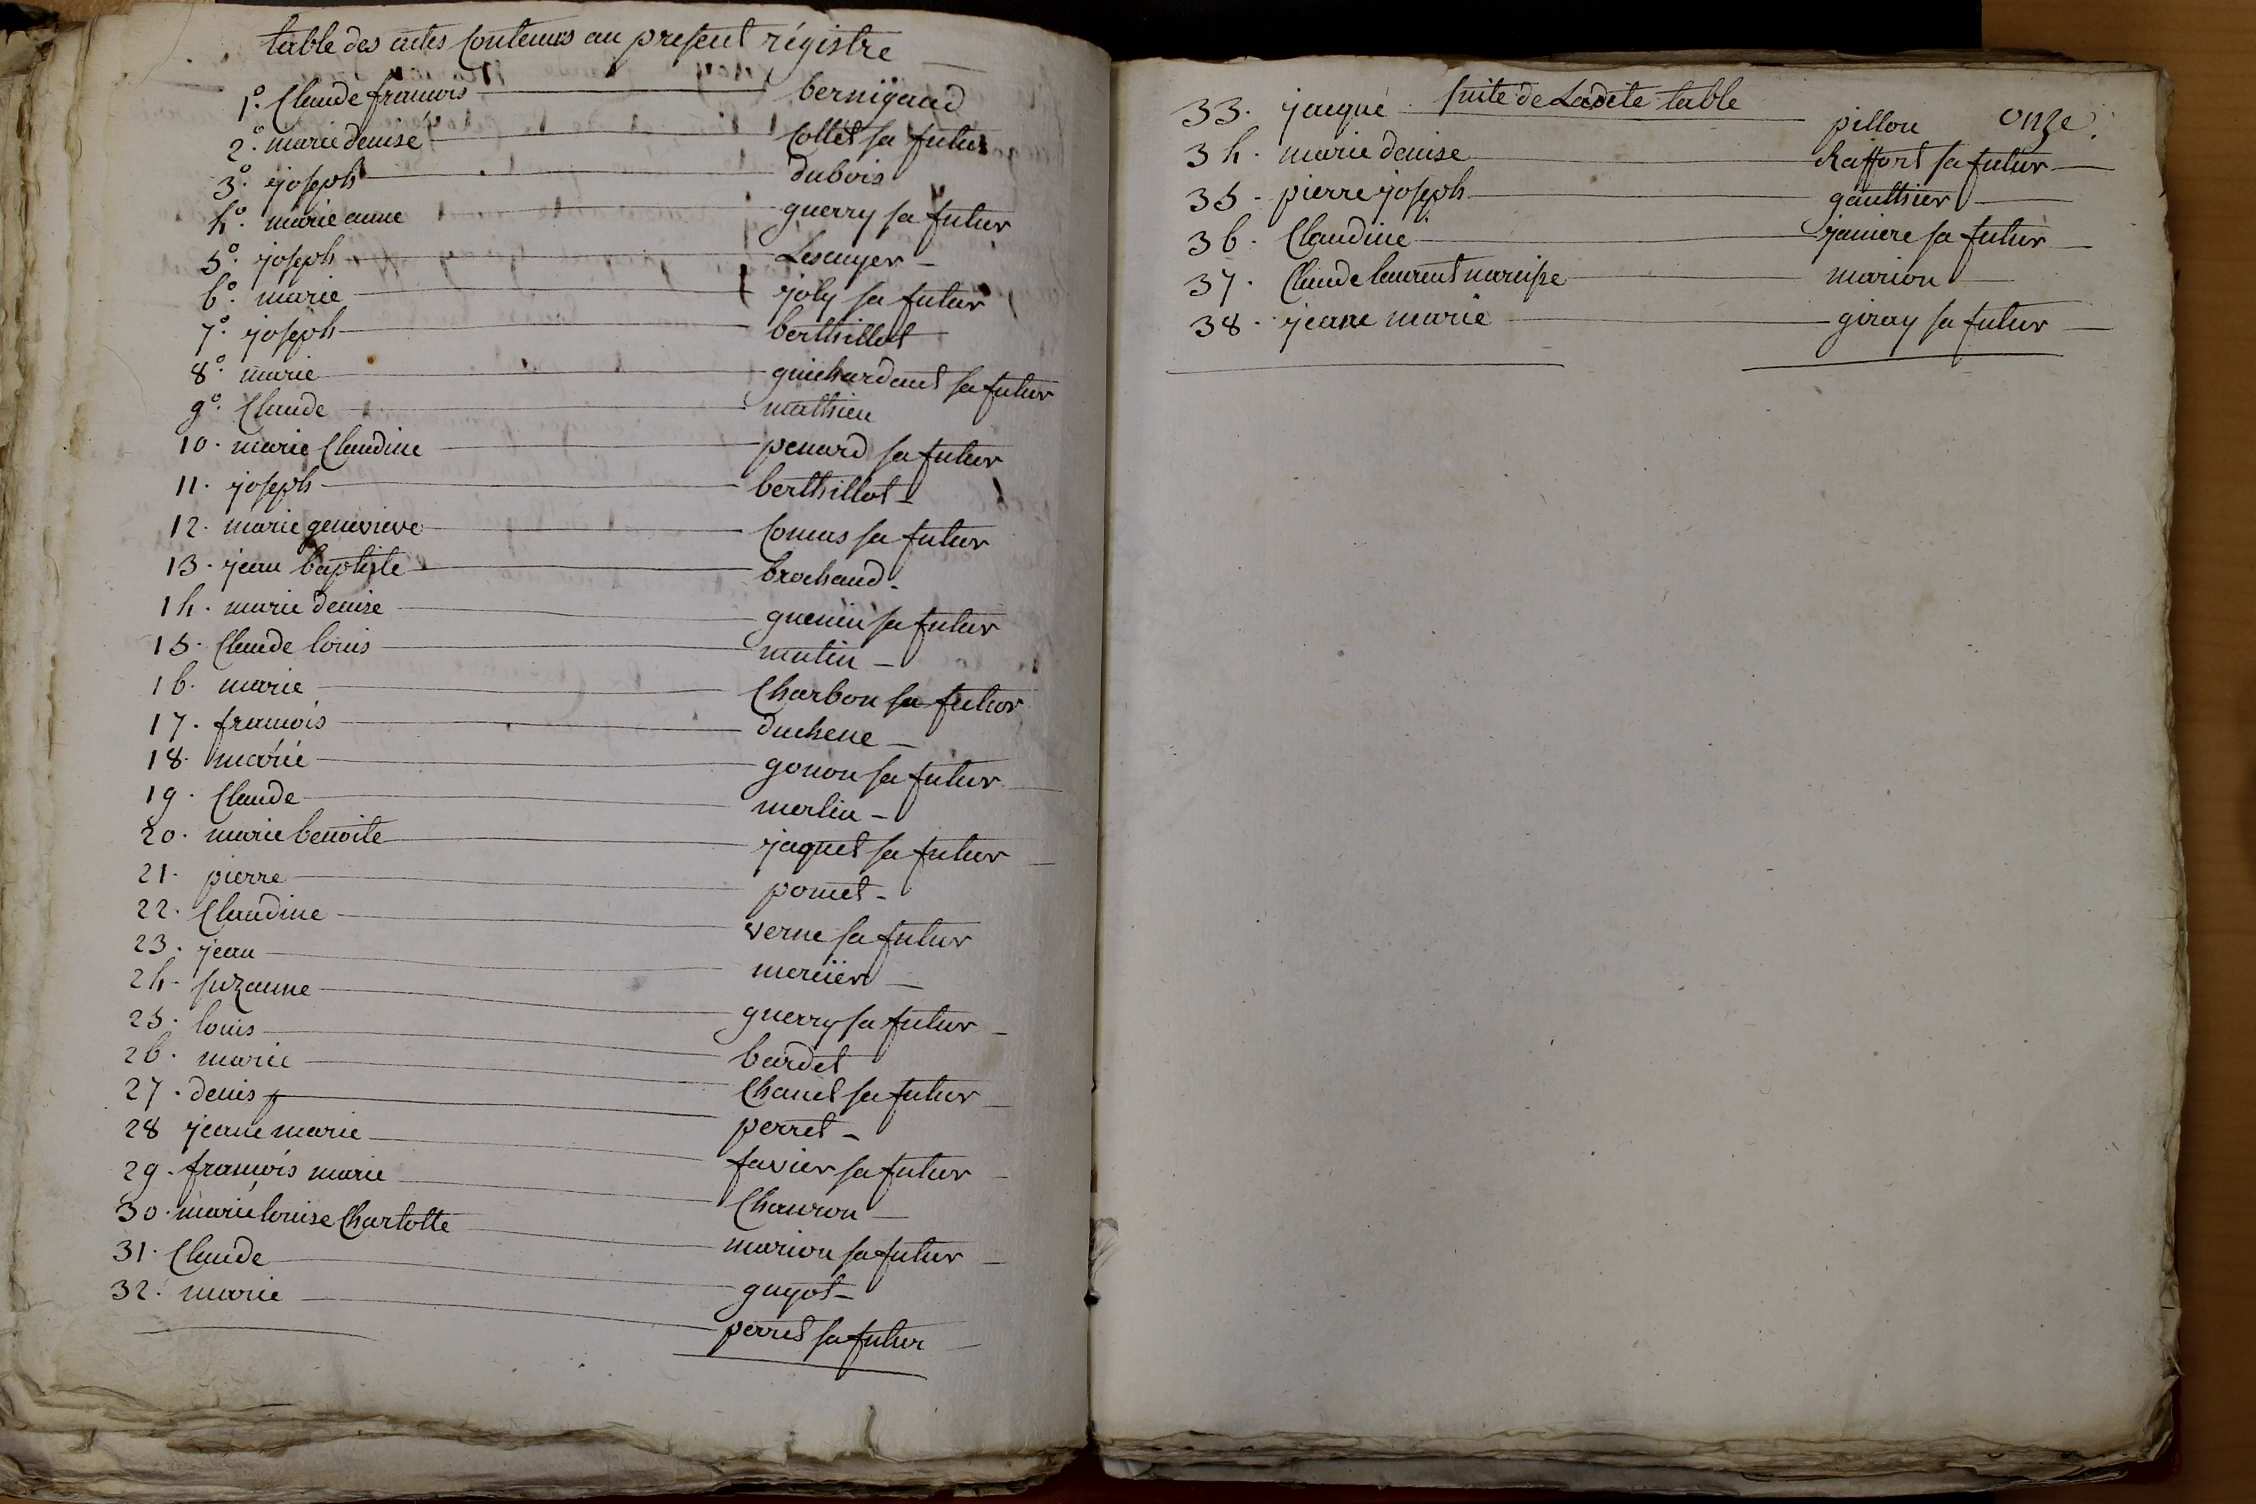 table des actes Contenus au present régistre
1º. Claude francois bernigaud
2º. marie denise Collet sa futur
3º. joseph dubois
4º. marie anne guerry sa futur
5º. joseph Lescuyer
6º. marie joly sa futur
7º. joseph berthillot
8º. marie guichardant sa futur
9º. Claude mathieu
10. marie Claudine penard sa futur
11. joseph berthillot
12. marie genevieve Comas sa futur
13. jean baptiste brochand
14. marie denise guenin sa futur
15. Claude louis mutin
16. marie Charbon sa futur
17. francois duchene
18. marie gonon sa futur
19. Claude merlin
20. marie benoite jaquet sa futur
21. pierre pomet
22. Claudine verne sa futur
23. jean mercier
24. suzanne guerry sa futur
25. louis bardet
26. marie Chanet sa futur
27. denis perret
28 jeane marie favier sa futur
29. francois marie Chauvon
30. marie louise Charlotte marion sa futur
31. Claude guyot
32. marie perret sa futur
suite de Ladite table
onze.
33. jacque pillon
34. marie denise Raffort sa futur
35. pierre joseph gauthier
36. Claudine janiere sa futur
37. Claude laurent narcisse marion
38. jeane marie giray sa futur